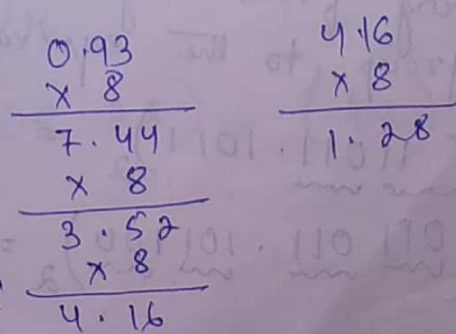 0.93
x 8
7.44
x 8
3.52
x 8
4.16
4.16
x 8
1.28